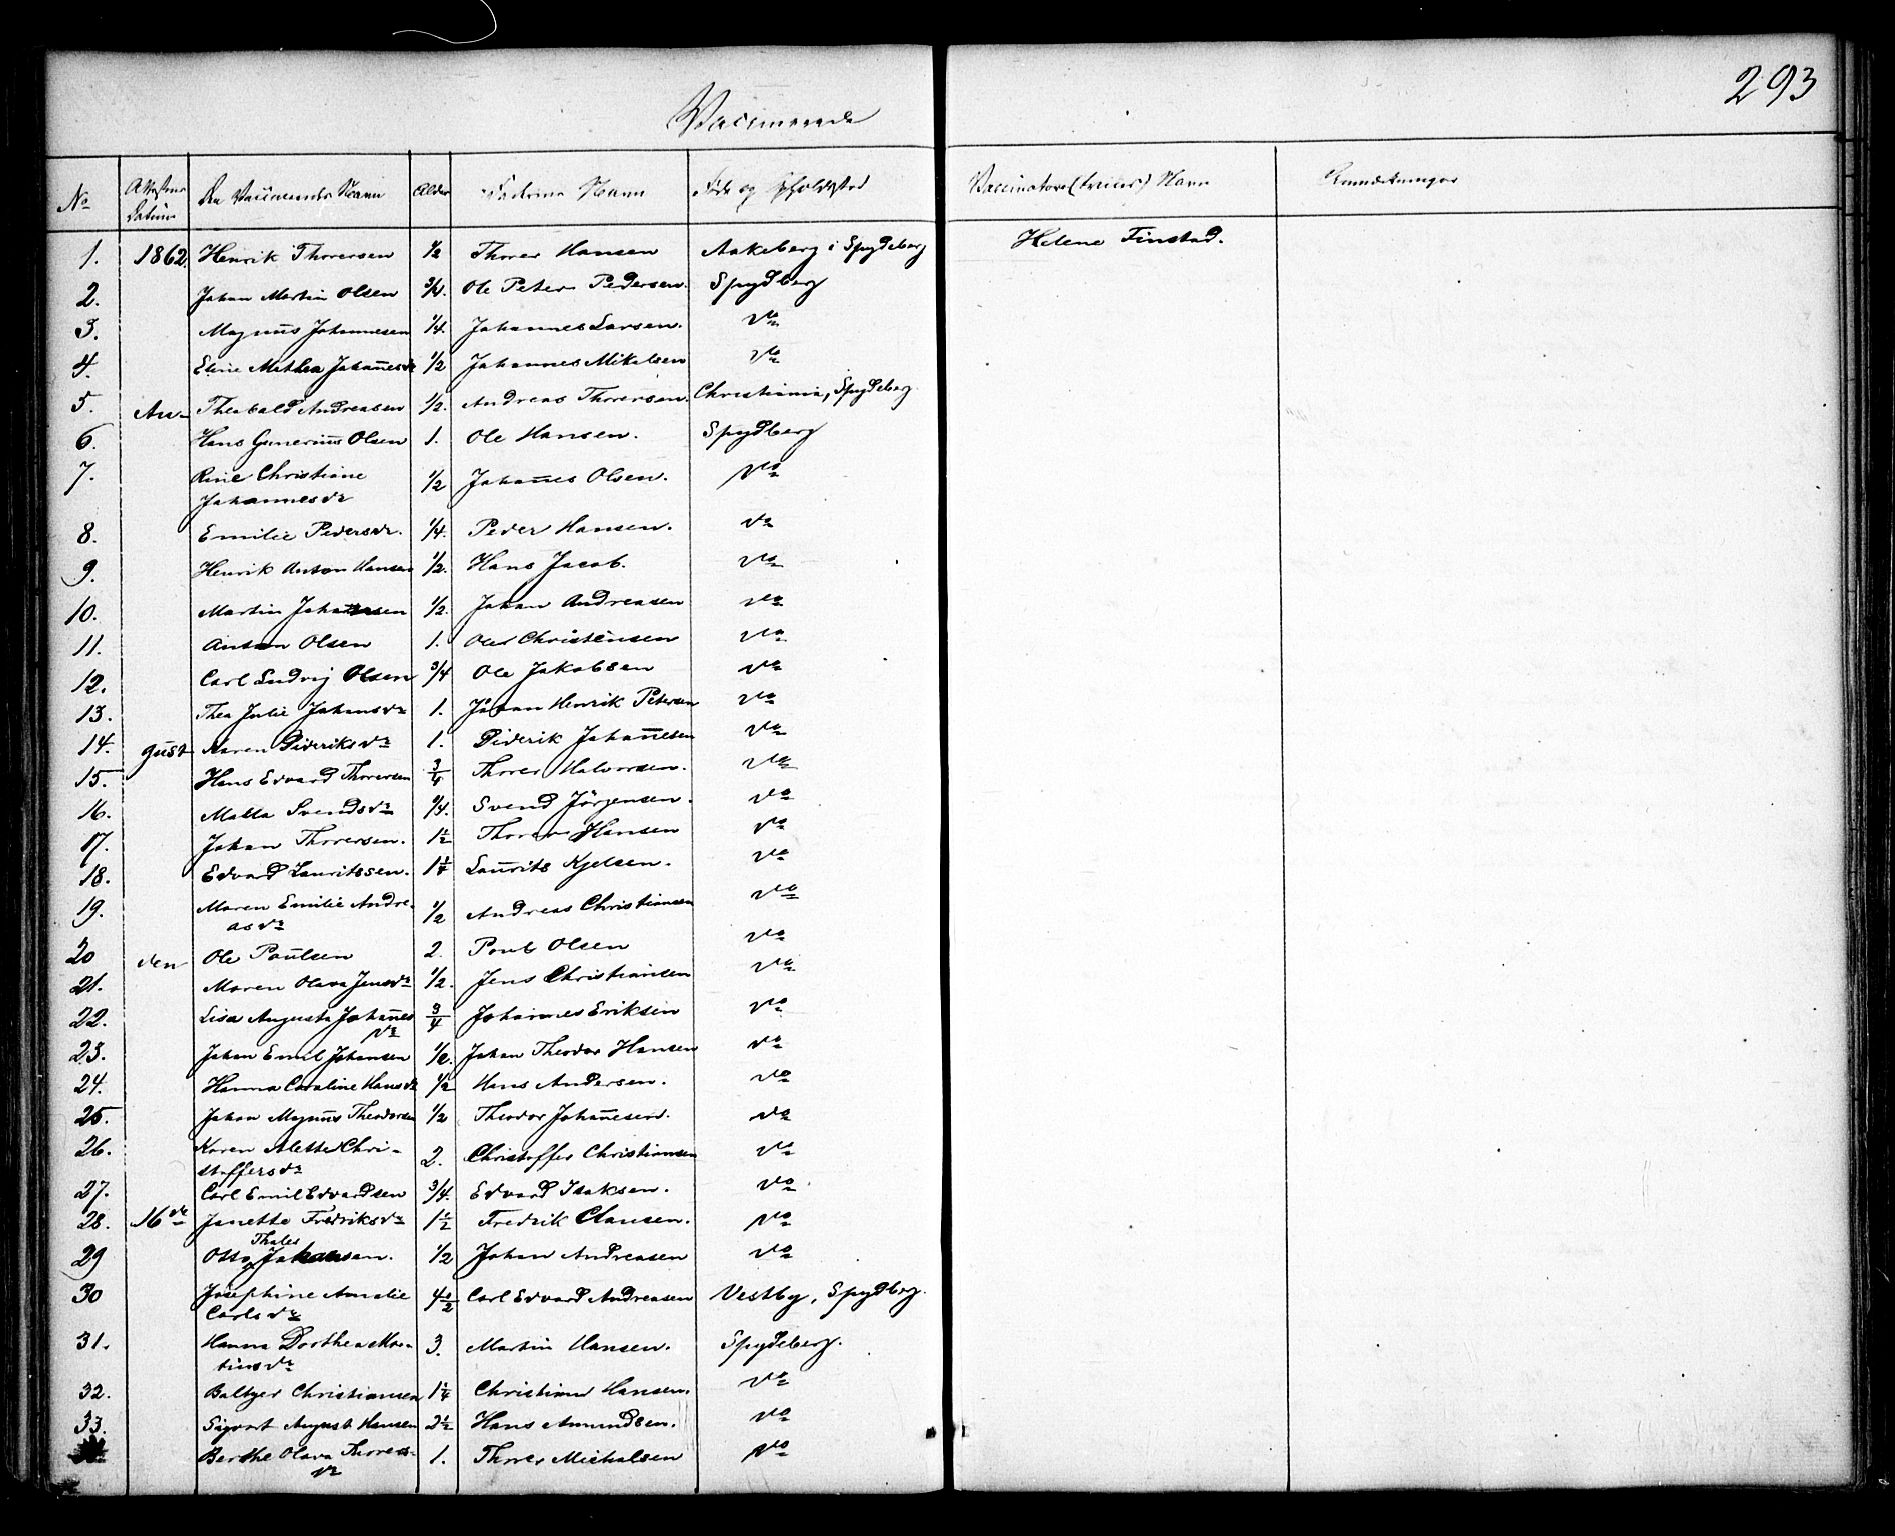 293
Vaccinerede
No Attestens Datum Den Vaccineredes Navn Alder Faderens Navn Føde og Opholdsted Vaccinators (Navn) Anmærkninger
1. 1862. Henrik Thorersen 1/2 Thorer Hansen Aakeberg i Spydeberg Helene Finstad.
2. Johan Martin Olsen 3/4. Ole Peter Pedersen. Spydberg
3. Magnus Johannesen 1/4. Johannes Larsen. do
4. Eline Mathea Johannesdr 1/2 Johannes Mikalsen do
5. Au- Theobald Andreasen 1/2. Andreas Thorersen. Christiania, Spydeberg
6. Hans Gunerius Olsen 1. Ole Hansen. Spydberg
7. Rine Christiane
Johannesdr 1/2 Johannes Olsen. do
8. Emilie Pedersdr. 1/4. Peder Hansen. do
9. Henrik Anton Hansen 1/2. Hans Jacob. do
10. Martin Johansen 1/2. Johan Andreasen do
11. Anton Olsen 1. Ole Christensen do
12. Carl Ludvig Olsen 3/4 Ole Jakobsen do
13. Thea Julie Johansdr 1. Johan Henrik Petersen do
14. gust Maren Dideriksdr 1. Diderik Johannesen do
15. Hans Edvard Thorersen 3/4 Thorer Halvorsen. do
16. Malla Svendsdr 3/4. Svend Jörgensen. do
17. Johan Thorersen. 1 1/2 Thorer Hansen do
18. Edvard Lauritssen. 1 1/4 Laurits Kjelsen. do
19. Maren Emilie Andre-
asdr 1/2 Andreas Christiansen do
20 den Ole Paulsen 2. Poul Olsen do
21. Maren Olava Jensdr 1/2. Jens Christiansen do
22. Lisa Augusta Johannes
dr 3/4 Johannes Eriksen do
23. Johan Emil Johansen 1/2. Johan Theodor Hansen do
24. Hanna Caroline Hansdr 1/2 Hans Andersen. do
25. Johan Magnus Theodorsen 1/2 Theodor Johannesen. do
26. Karen Alette Chri-
stoffersdr 2. Christoffer Christiansen do
27. Carl Emil Edvardsen 3/4. Edvard Isaksen. do
28. 16de Janette Fredriksdr 1 1/2 Fredrik Clausen. do
Thales
29 Otto Johansen. 1/2 Johan Andreasen do
30 Josephine Amalie
Carlsdr 4 1/2 Carl Edvard Andreasen Vestby, Spydberg.
31. Hanna Dorthea Mar-
tinsdr 3. Martin Hansen. Spydeberg.
32. Baltzer Christiansen 1 1/4 Christian Hansen. do
33. Sigvart August Hansen 2 1/2 Hans Amundsen. do
Berthe Olava Thorers-
dr 1. Thorer Michalsen do